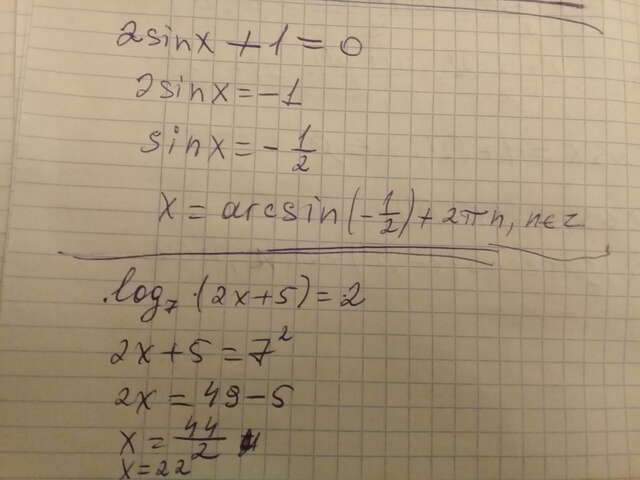 2sinx + 1 = 0
2sinx = -1
sinx = - 1/2
x = arcsin(-1/2) + 2πn, n∈z
log₇ (2x+5) = 2
2x + 5 = 7²
2x = 49 - 5
x = 44/2
x = 22